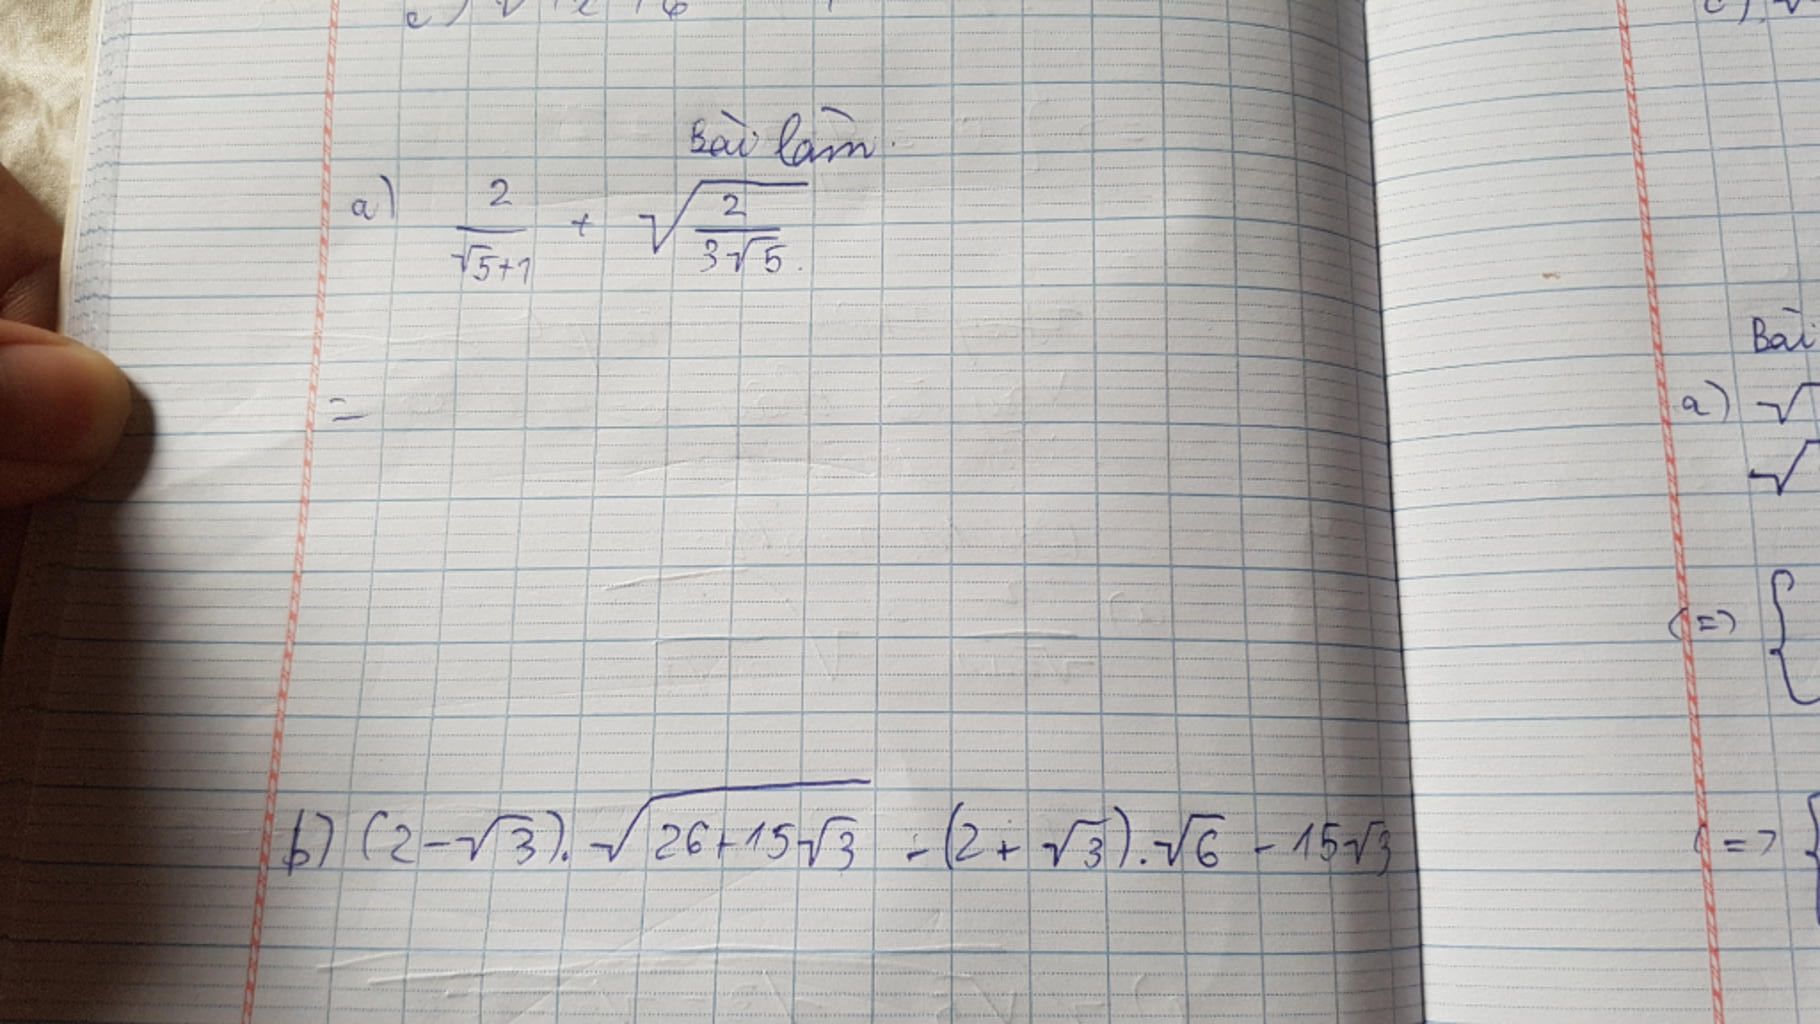 Bài làm.
a) 2/(√5+1) + √(2/(3√5))
=
b) (2-√3).√(26+15√3) - (2+√3).√6 - 15√3
Bài
a) √
√
(=) {
(=> {